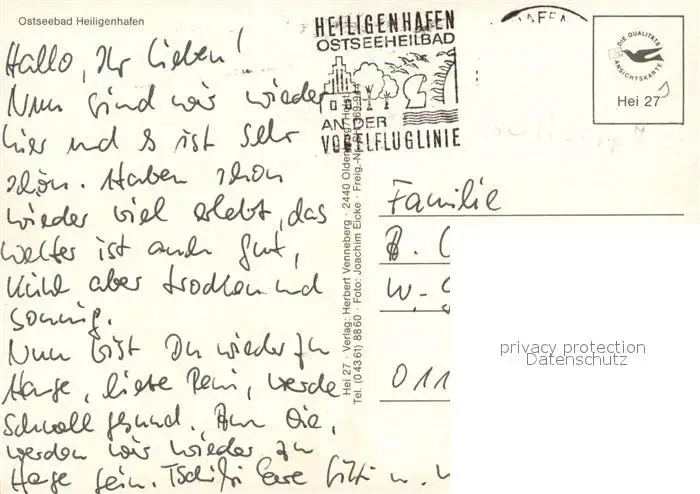 Ostseebad Heiligenhafen
Hallo, Ihr Lieben!
Nun sind wir wieder
hier und es ist sehr
schön. Haben schon
wieder viel erlebt, das
Wetter ist auch gut,
kühl aber trocken und
sonnig.
Nun bist Du wieder zu
Hause, liebe Reni, werde
schnell gesund. Am Die.
werden wir wieder zu
Hause sein. Tschüß Eure
HEILIGENHAFEN
OSTSEEHEILBAD
AN DER
VOGELFLUGLINIE
Hei 27 · Verlag: Herbert Venneberg · 2440 Oldenburg/Holst.
Tel. (04361) 8860 · Foto: Joachim Eicke · Freig.-Nr.
DIE QUALITÄTS
ANSICHTSKARTE
Hei 27
Familie
B.
W-
011
privacy protection
Datenschutz